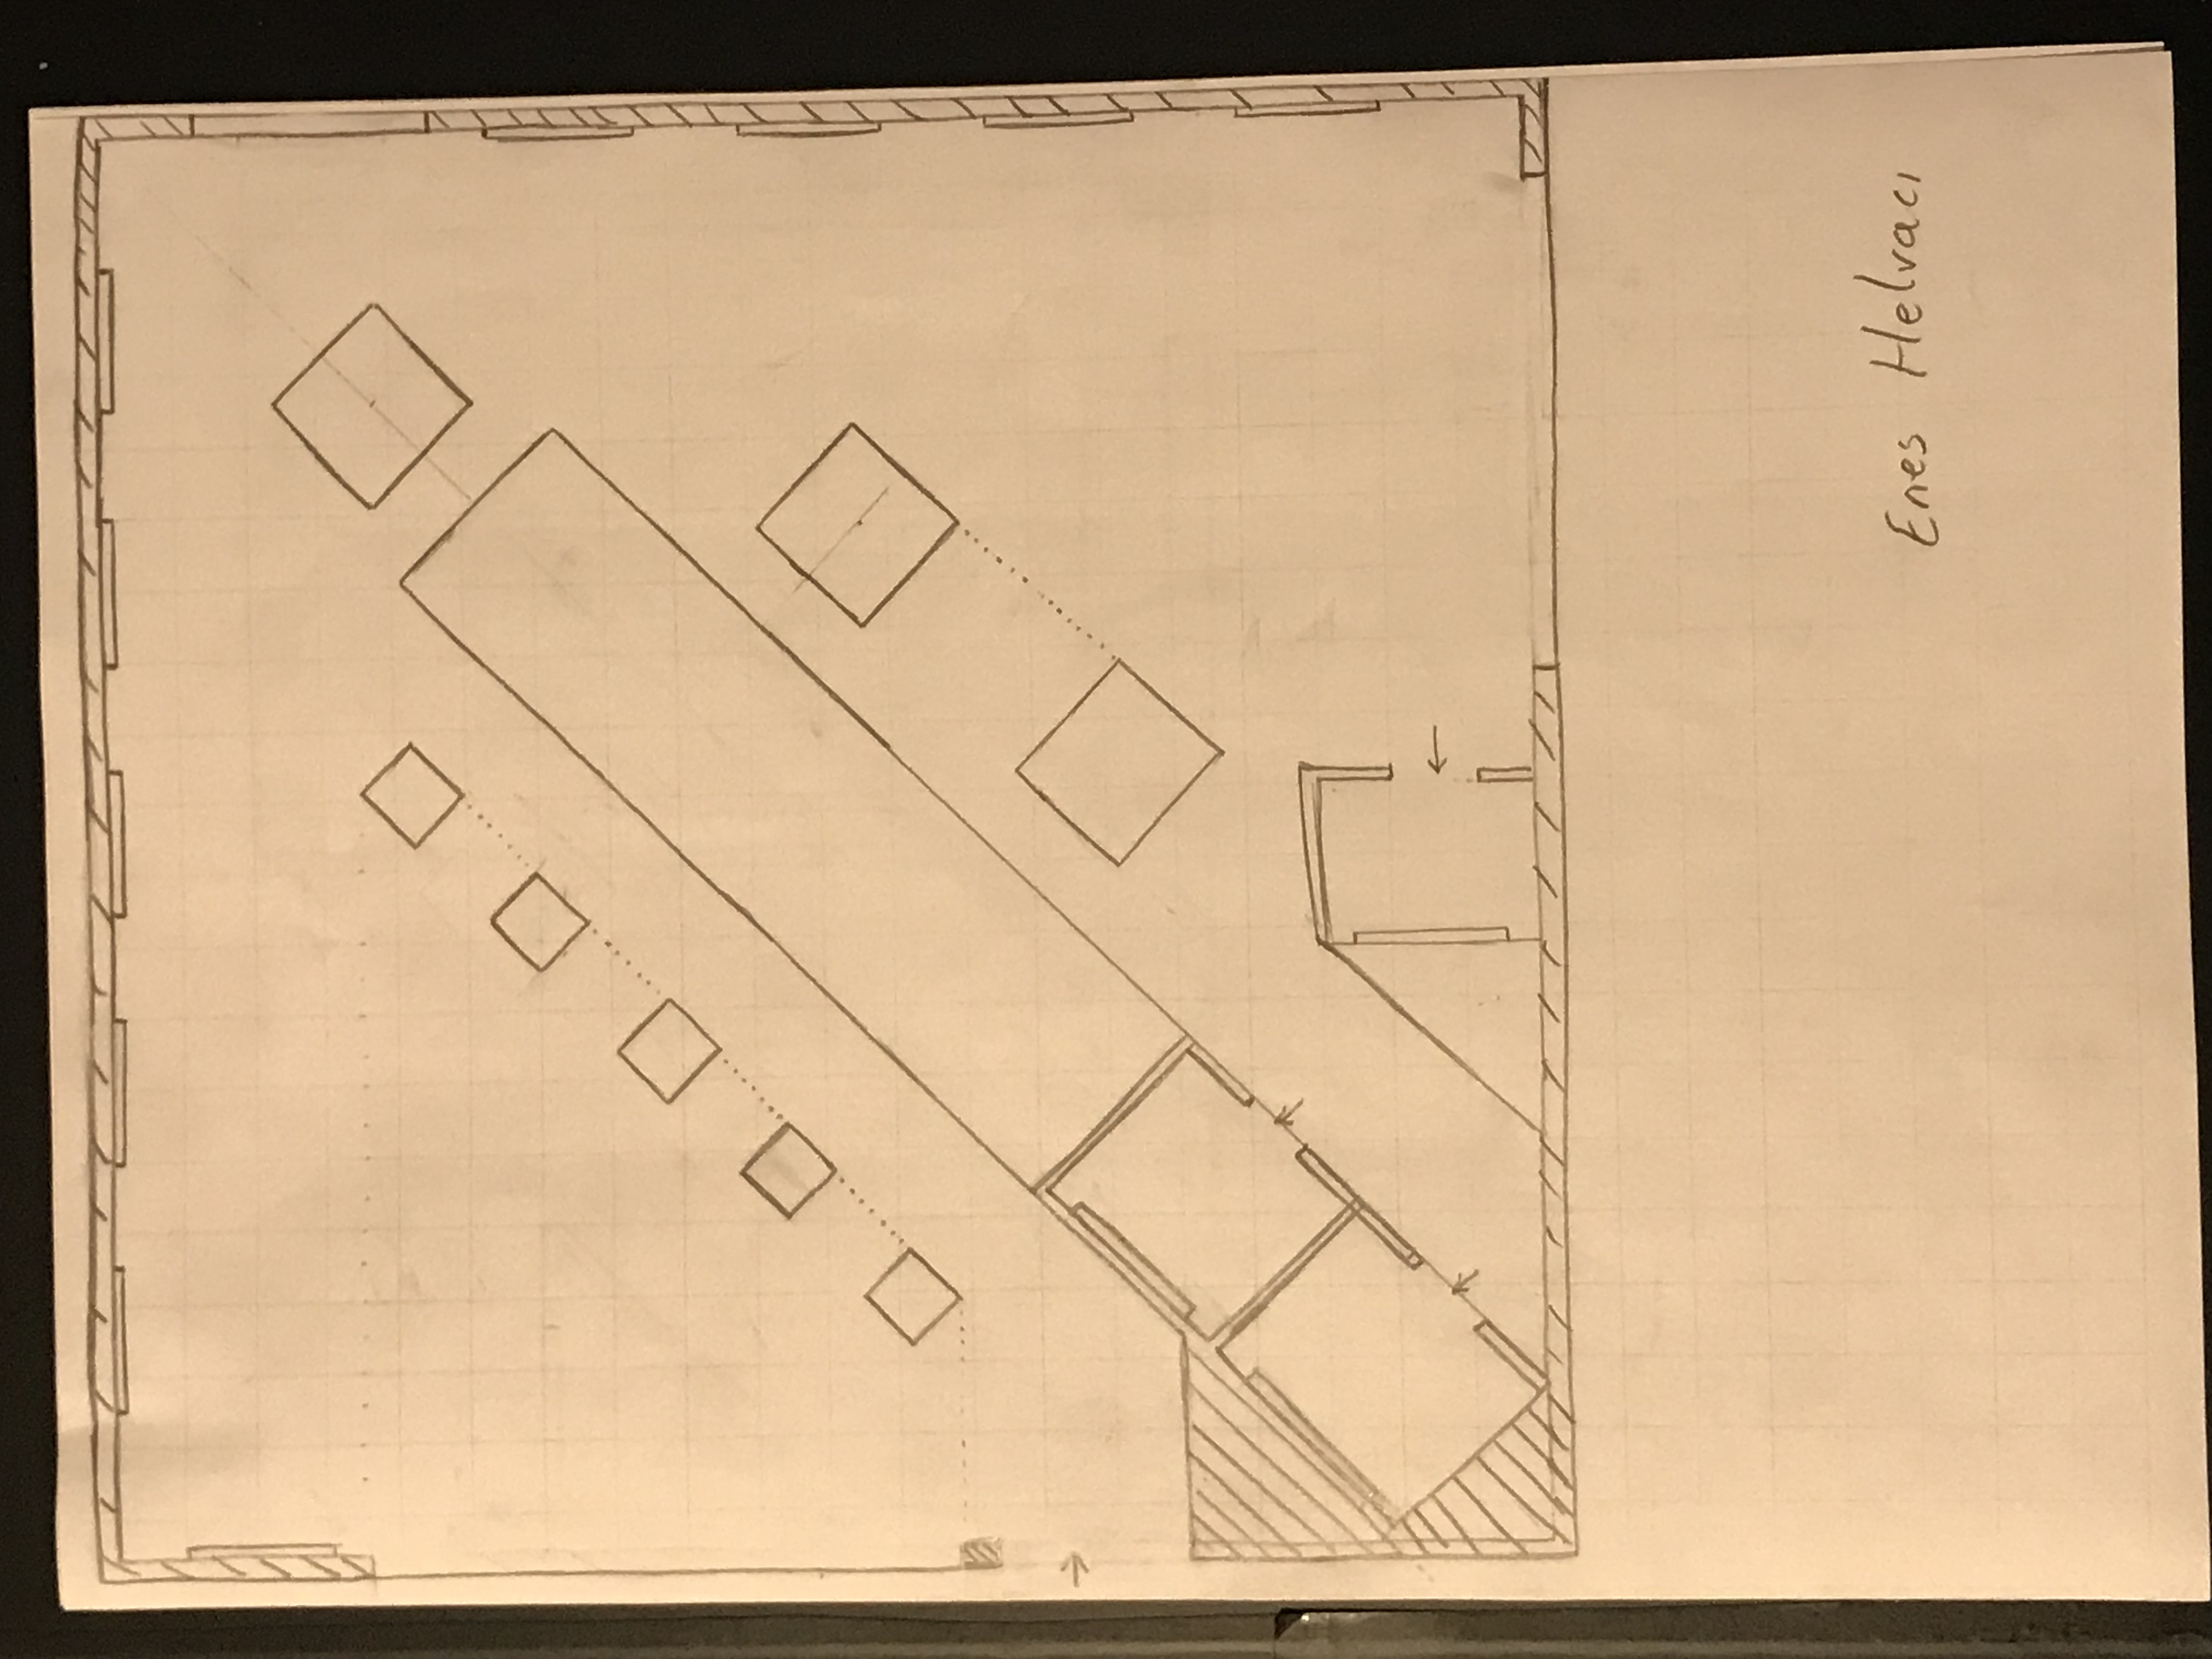 Enes Helvacı